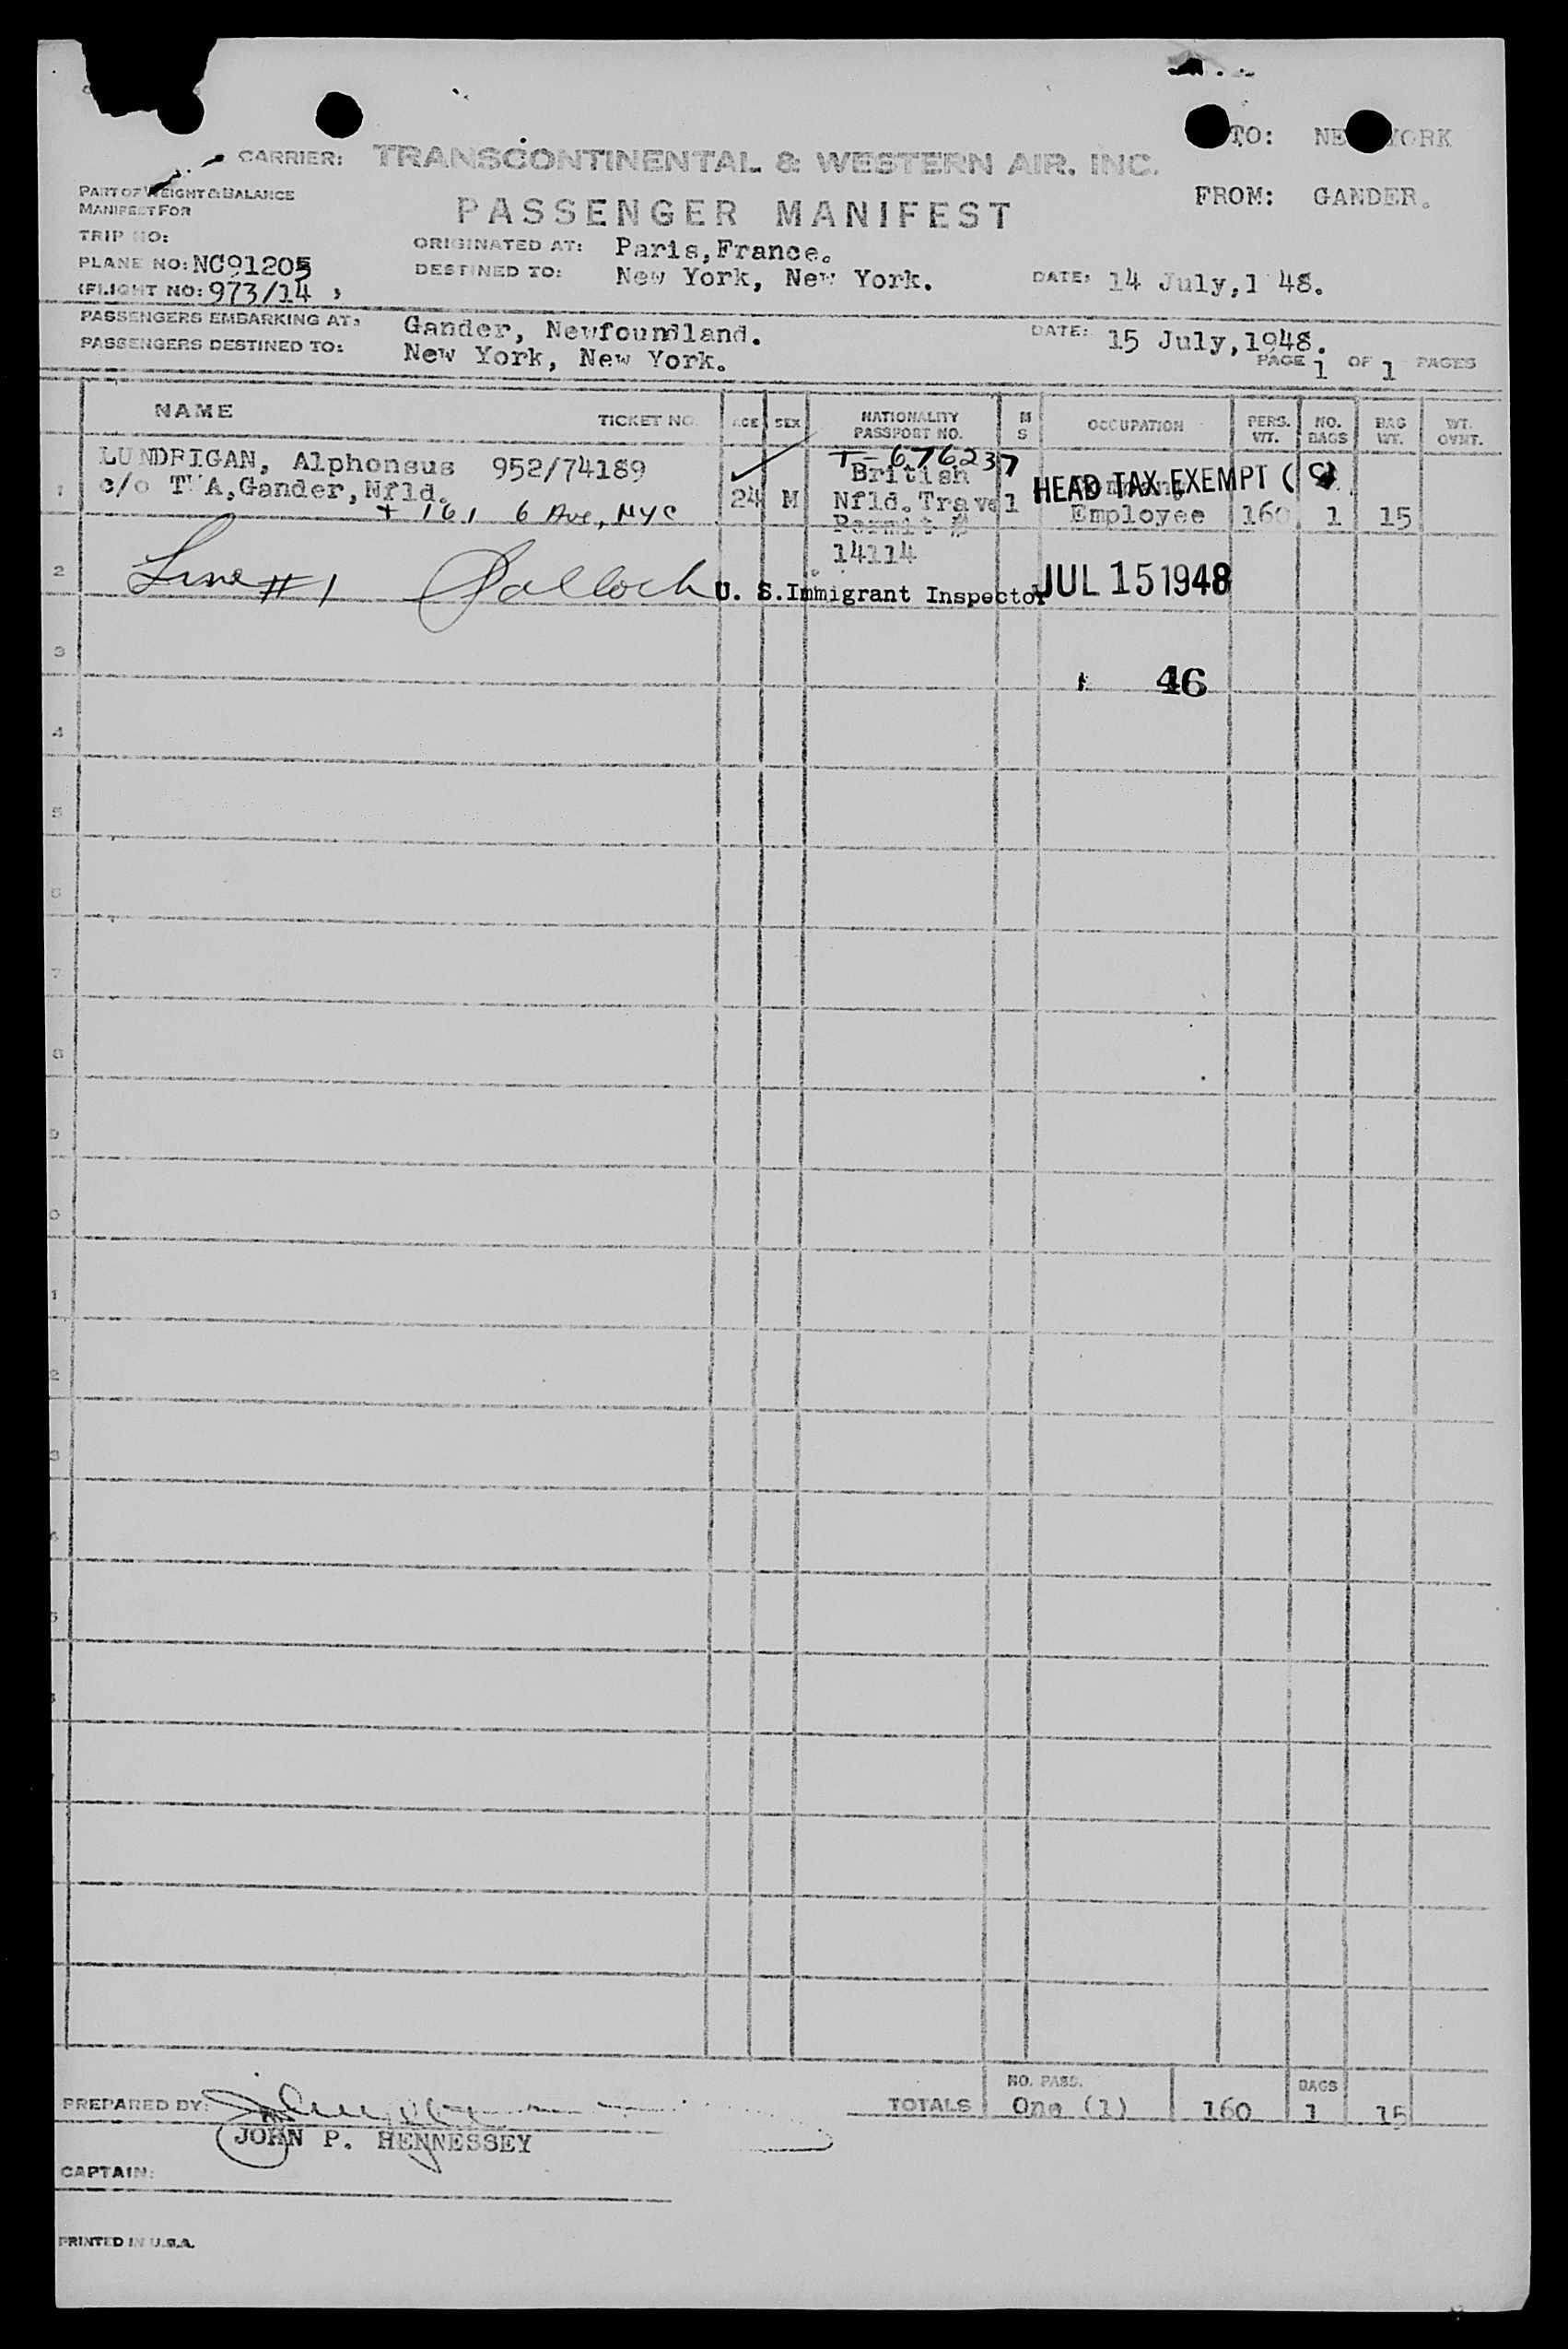 TO: NEW YORK
CARRIER: TRANSCONTINENTAL & WESTERN AIR. INC.
PART OF WEIGHT & BALANCE
MANIFEST FOR
FROM: GANDER.
PASSENGER MANIFEST
TRIP NO:
ORIGINATED AT: Paris,France.
PLANE NO: NC91205
DESTINED TO: New York, New York.
DATE: 14 July,1 48.
(FLIGHT NO: 973/14 )
PASSENGERS EMBARKING AT: Gander, Newfoundland.
DATE: 15 July,1948.
PASSENGERS DESTINED TO: New York, New York.
PAGE 1 OF 1 PAGES
NAME TICKET NO. AGE SEX NATIONALITY PASSPORT NO. M S OCCUPATION PERS. WT. NO. BAGS BAG WT. WT. OVNT.
T-676237
LUNDRIGAN, Alphonsus 952/74189 British
HEAD TAX EXEMPT (
1 c/o TWA,Gander,Nfld. 24 M Nfld.Travel Employee 160 1 15
+ 161 6 Ave, NYC Permit #
14114
2 Line # 1 Pollock U. S. Immigrant Inspector JUL 15 1948
3
46
4
5
6
7
8
9
0
1
2
3
NO. PASS. BAGS
PREPARED BY: TOTALS One (1) 160 1 15
JOHN P. HENNESSEY
CAPTAIN:
PRINTED IN U.S.A.